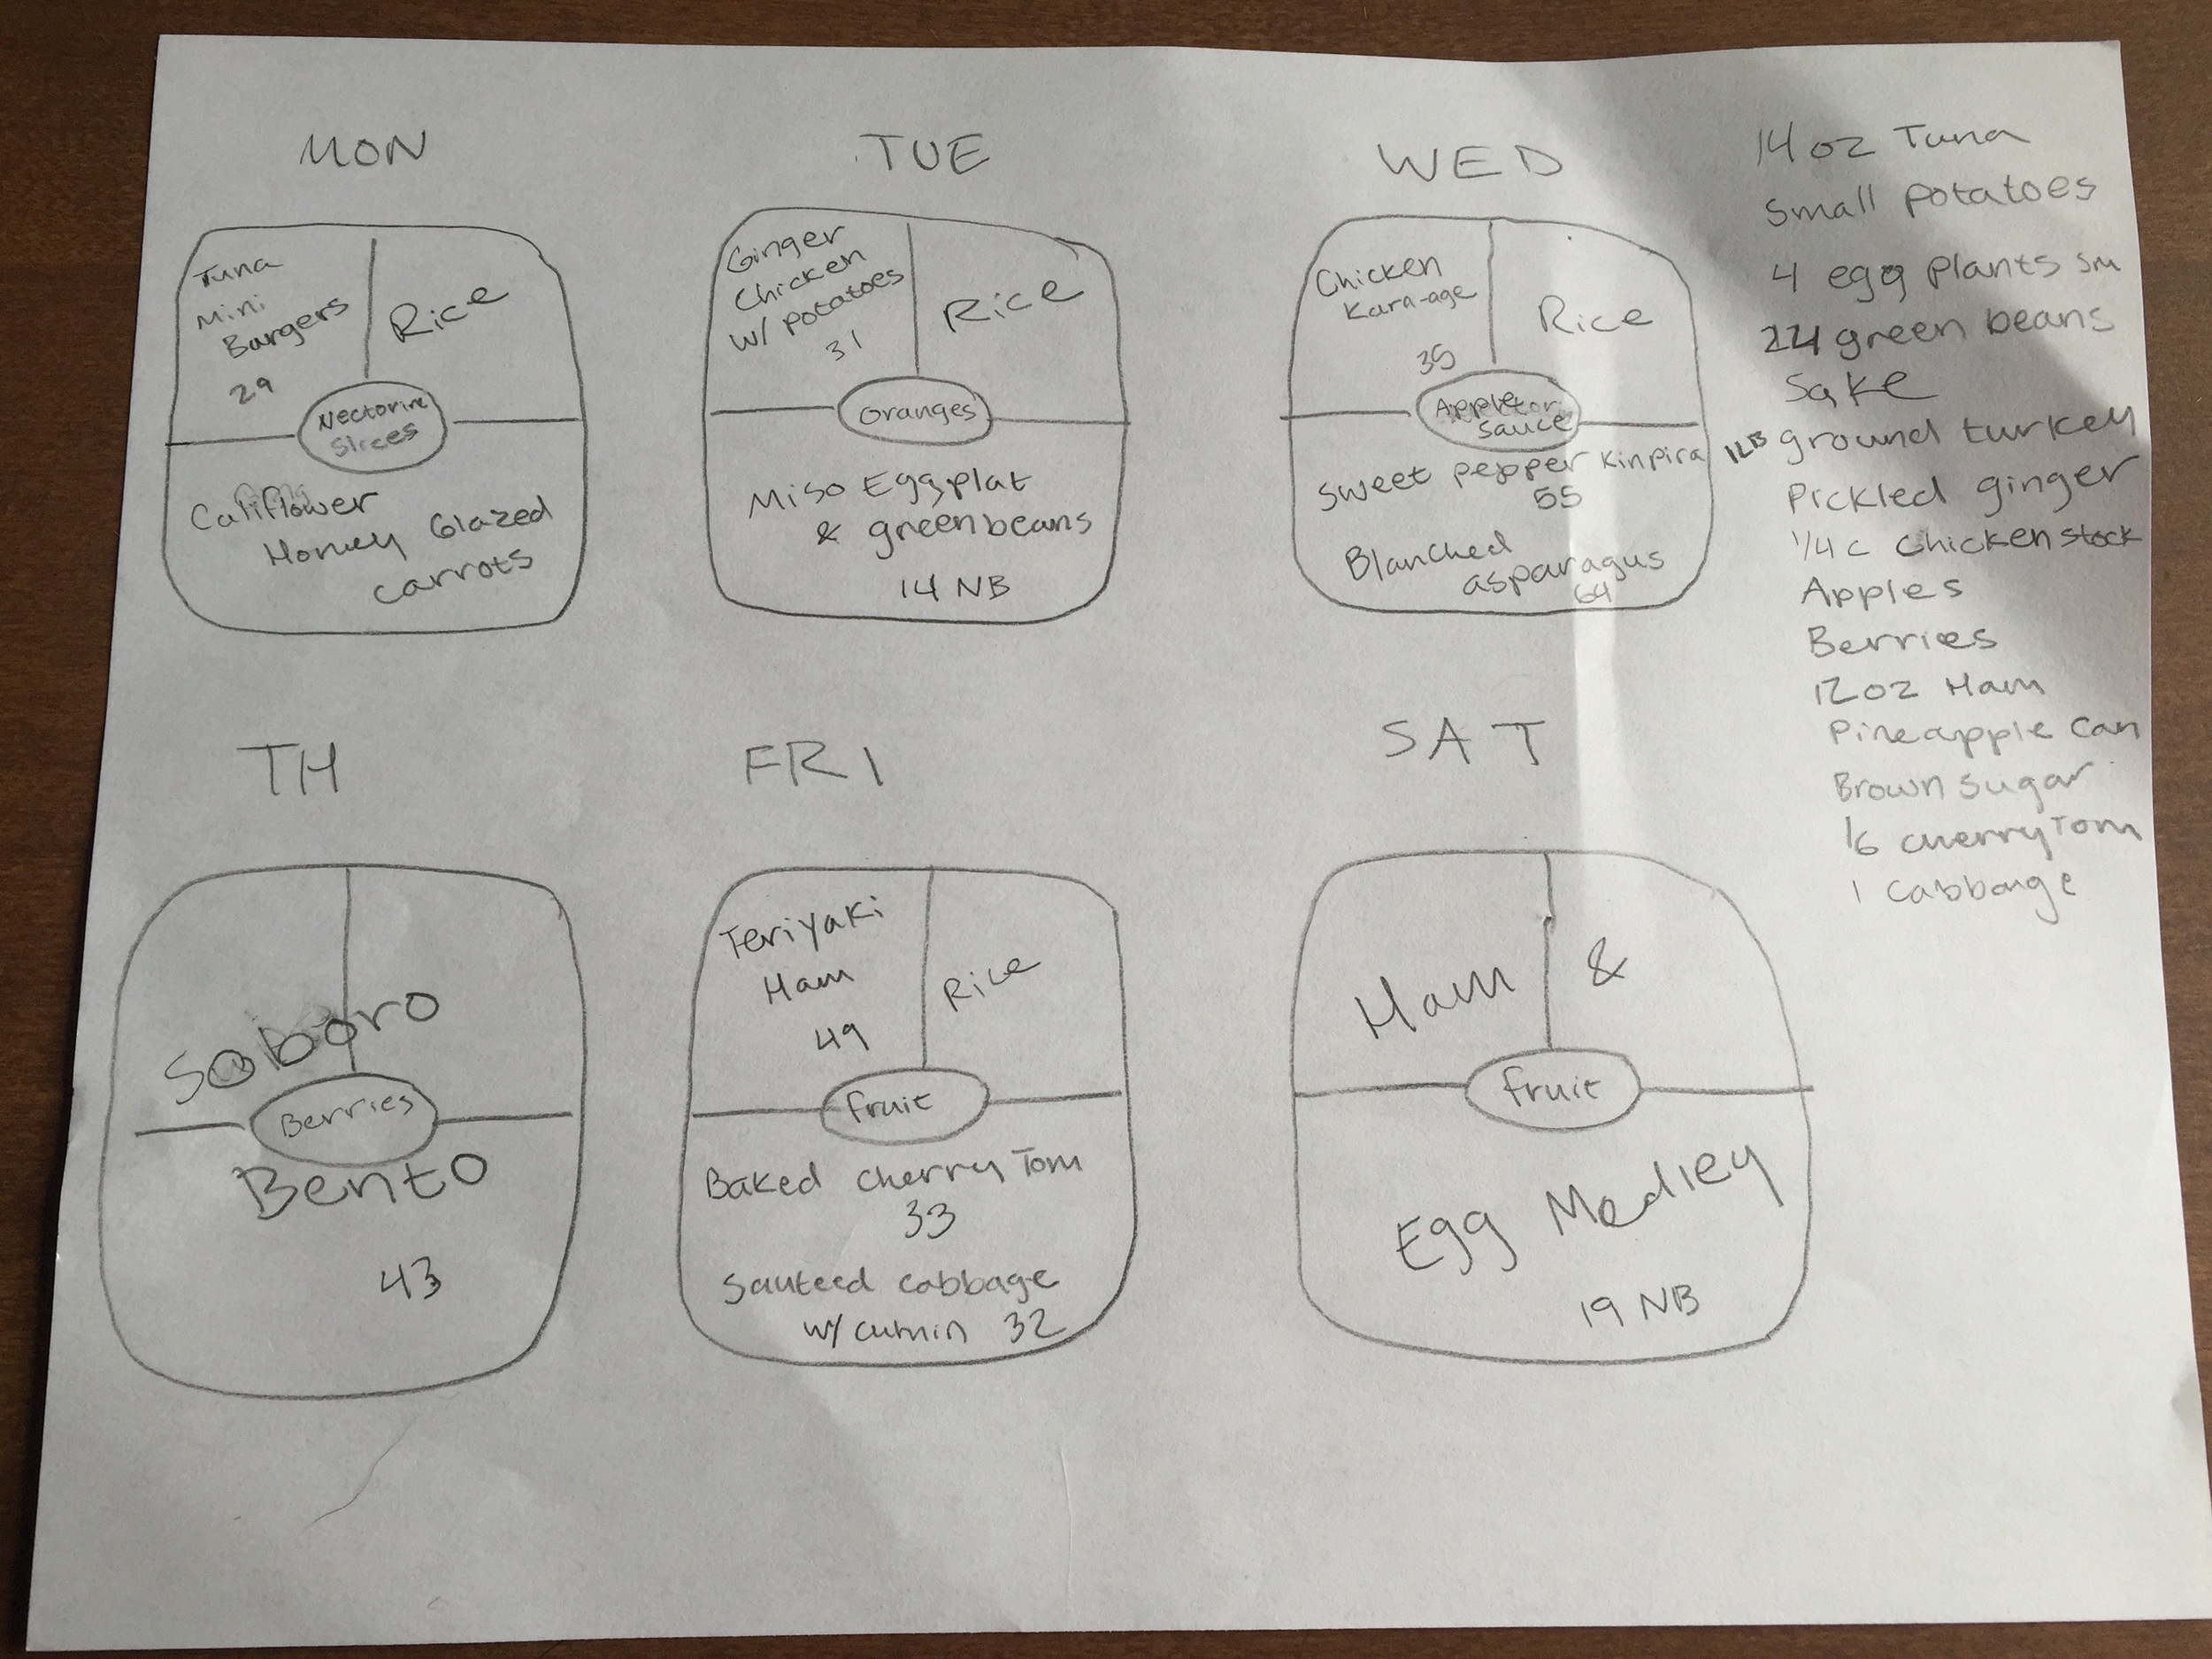 MON
Tuna
Mini
Burgers
29
Rice
Nectorine
Slices
Califlower
Honey Glazed
carrots
TUE
Ginger
Chicken
w/ potatoes
31
Rice
Oranges
Miso Eggplat
& greenbeans
14 NB
WED
Chicken
Kara-age
35
Rice
Apple
Sauce
Sweet pepper Kinpira
55
Blanched
asparagus
64
TH
Soboro
Berries
Bento
43
FRI
Teriyaki
Ham
49
Rice
fruit
Baked Cherry Tom
33
Sauteed cabbage
w/ cumin 32
SAT
Ham &
fruit
Egg Medley
19 NB
14 oz Tuna
Small potatoes
4 egg plants sm
24 green beans
Sake
1LB ground turkey
Pickled ginger
1/4 c Chicken stock
Apples
Berries
12 oz Ham
Pineapple Can
Brown sugar
16 cherry Tom
1 Cabbage